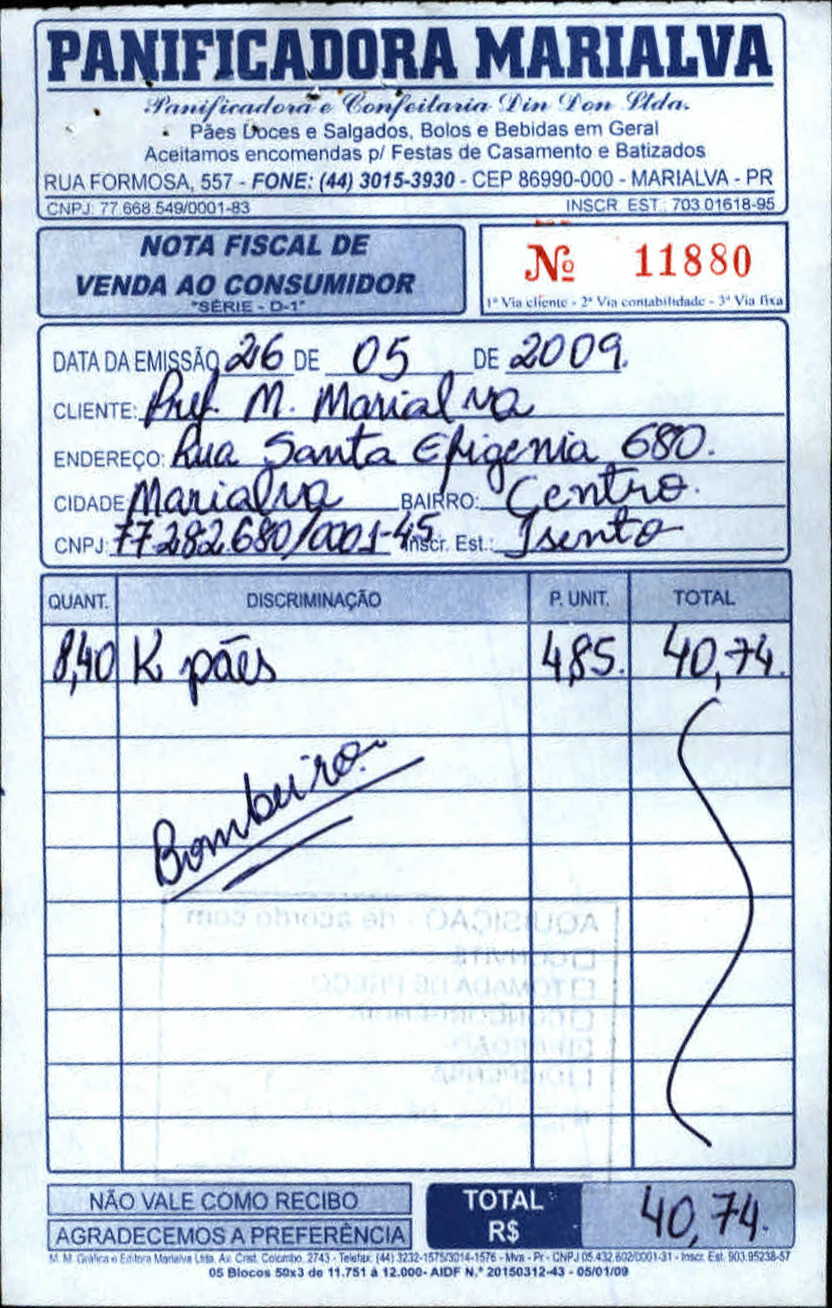 PANIFICADORA MARIALVA
Panificadora e Confeitaria Din Don Ltda.
Pães Doces e Salgados, Bolos e Bebidas em Geral
Aceitamos encomendas p/ Festas de Casamento e Batizados
RUA FORMOSA, 557 - FONE: (44) 3015-3930 - CEP 86990-000 - MARIALVA - PR
CNPJ: 77.668.549/0001-83 INSCR. EST.: 703.01618-95
NOTA FISCAL DE
VENDA AO CONSUMIDOR
"SÉRIE - D-1"
Nº 11880
1ª Via cliente - 2ª Via contabilidade - 3ª Via fixa
DATA DA EMISSÃO 26 DE 05 DE 2009.
CLIENTE: Pref. M. Marialva
ENDEREÇO: Rua Santa Efigenia 680.
CIDADE Marialva BAIRRO: Centro.
CNPJ: 77.282.680/0001-45 Inscr. Est.: Isento
QUANT. DISCRIMINAÇÃO P. UNIT. TOTAL
8,40 K pães 4,85. 40,74.
Bombeiro
AQUISIÇÃO - de acordo com
CONVITE
TOMADA DE PREÇO
CONCORRÊNCIA
NÃO VALE COMO RECIBO
AGRADECEMOS A PREFERÊNCIA
TOTAL R$ 40,74.
M. M. Gráfica e Editora Marialva Ltda. Av. Crist. Colombo, 2743 - Telefax: (44) 3232-1575/3014-1576 - Mva - Pr - CNPJ 05.432.602/0001-31 - Inscr. Est. 903.95238-57
05 Blocos 50x3 de 11.751 à 12.000- AIDF N.º 20150312-43 - 05/01/09